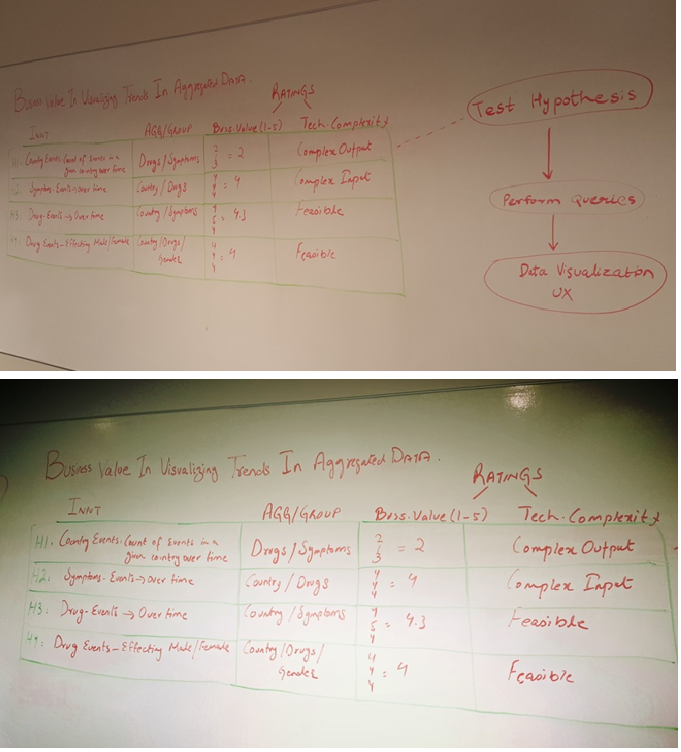 Business Value In Visualizing Trends In Aggregated DATA.
RATINGS
INNT AGG/GROUP Buss.Value (1-5) Tech.Complexity
H1. Country Events: Count of Events in a given country over time Drugs/Symptoms 2 3 = 2 Complex Output
H2: Symptoms-Events → Over time Country/Drugs 4 4 4 = 4 Complex Input
H3: Drug-Events → Over time Country/Symptoms 4 5 4 = 4.3 Feasible
H4: Drug Events-Effecting Male/Female Country/Drugs/Gender 4 4 4 = 4 Feasible
Test Hypothesis
Perform queries
Data Visualization
UX
Business Value In Visualizing Trends In Aggregated DATA.
RATINGS
INNT AGG/GROUP Buss.Value (1-5) Tech.Complexity
H1. Country Events: Count of Events in a given country over time Drugs/Symptoms 2 3 = 2 Complex Output
H2: Symptoms-Events → Over time Country/Drugs 4 4 4 = 4 Complex Input
H3: Drug-Events → Over time Country/Symptoms 4 5 4 = 4.3 Feasible
H4: Drug Events-Effecting Male/Female Country/Drugs/Gender 4 4 4 = 4 Feasible